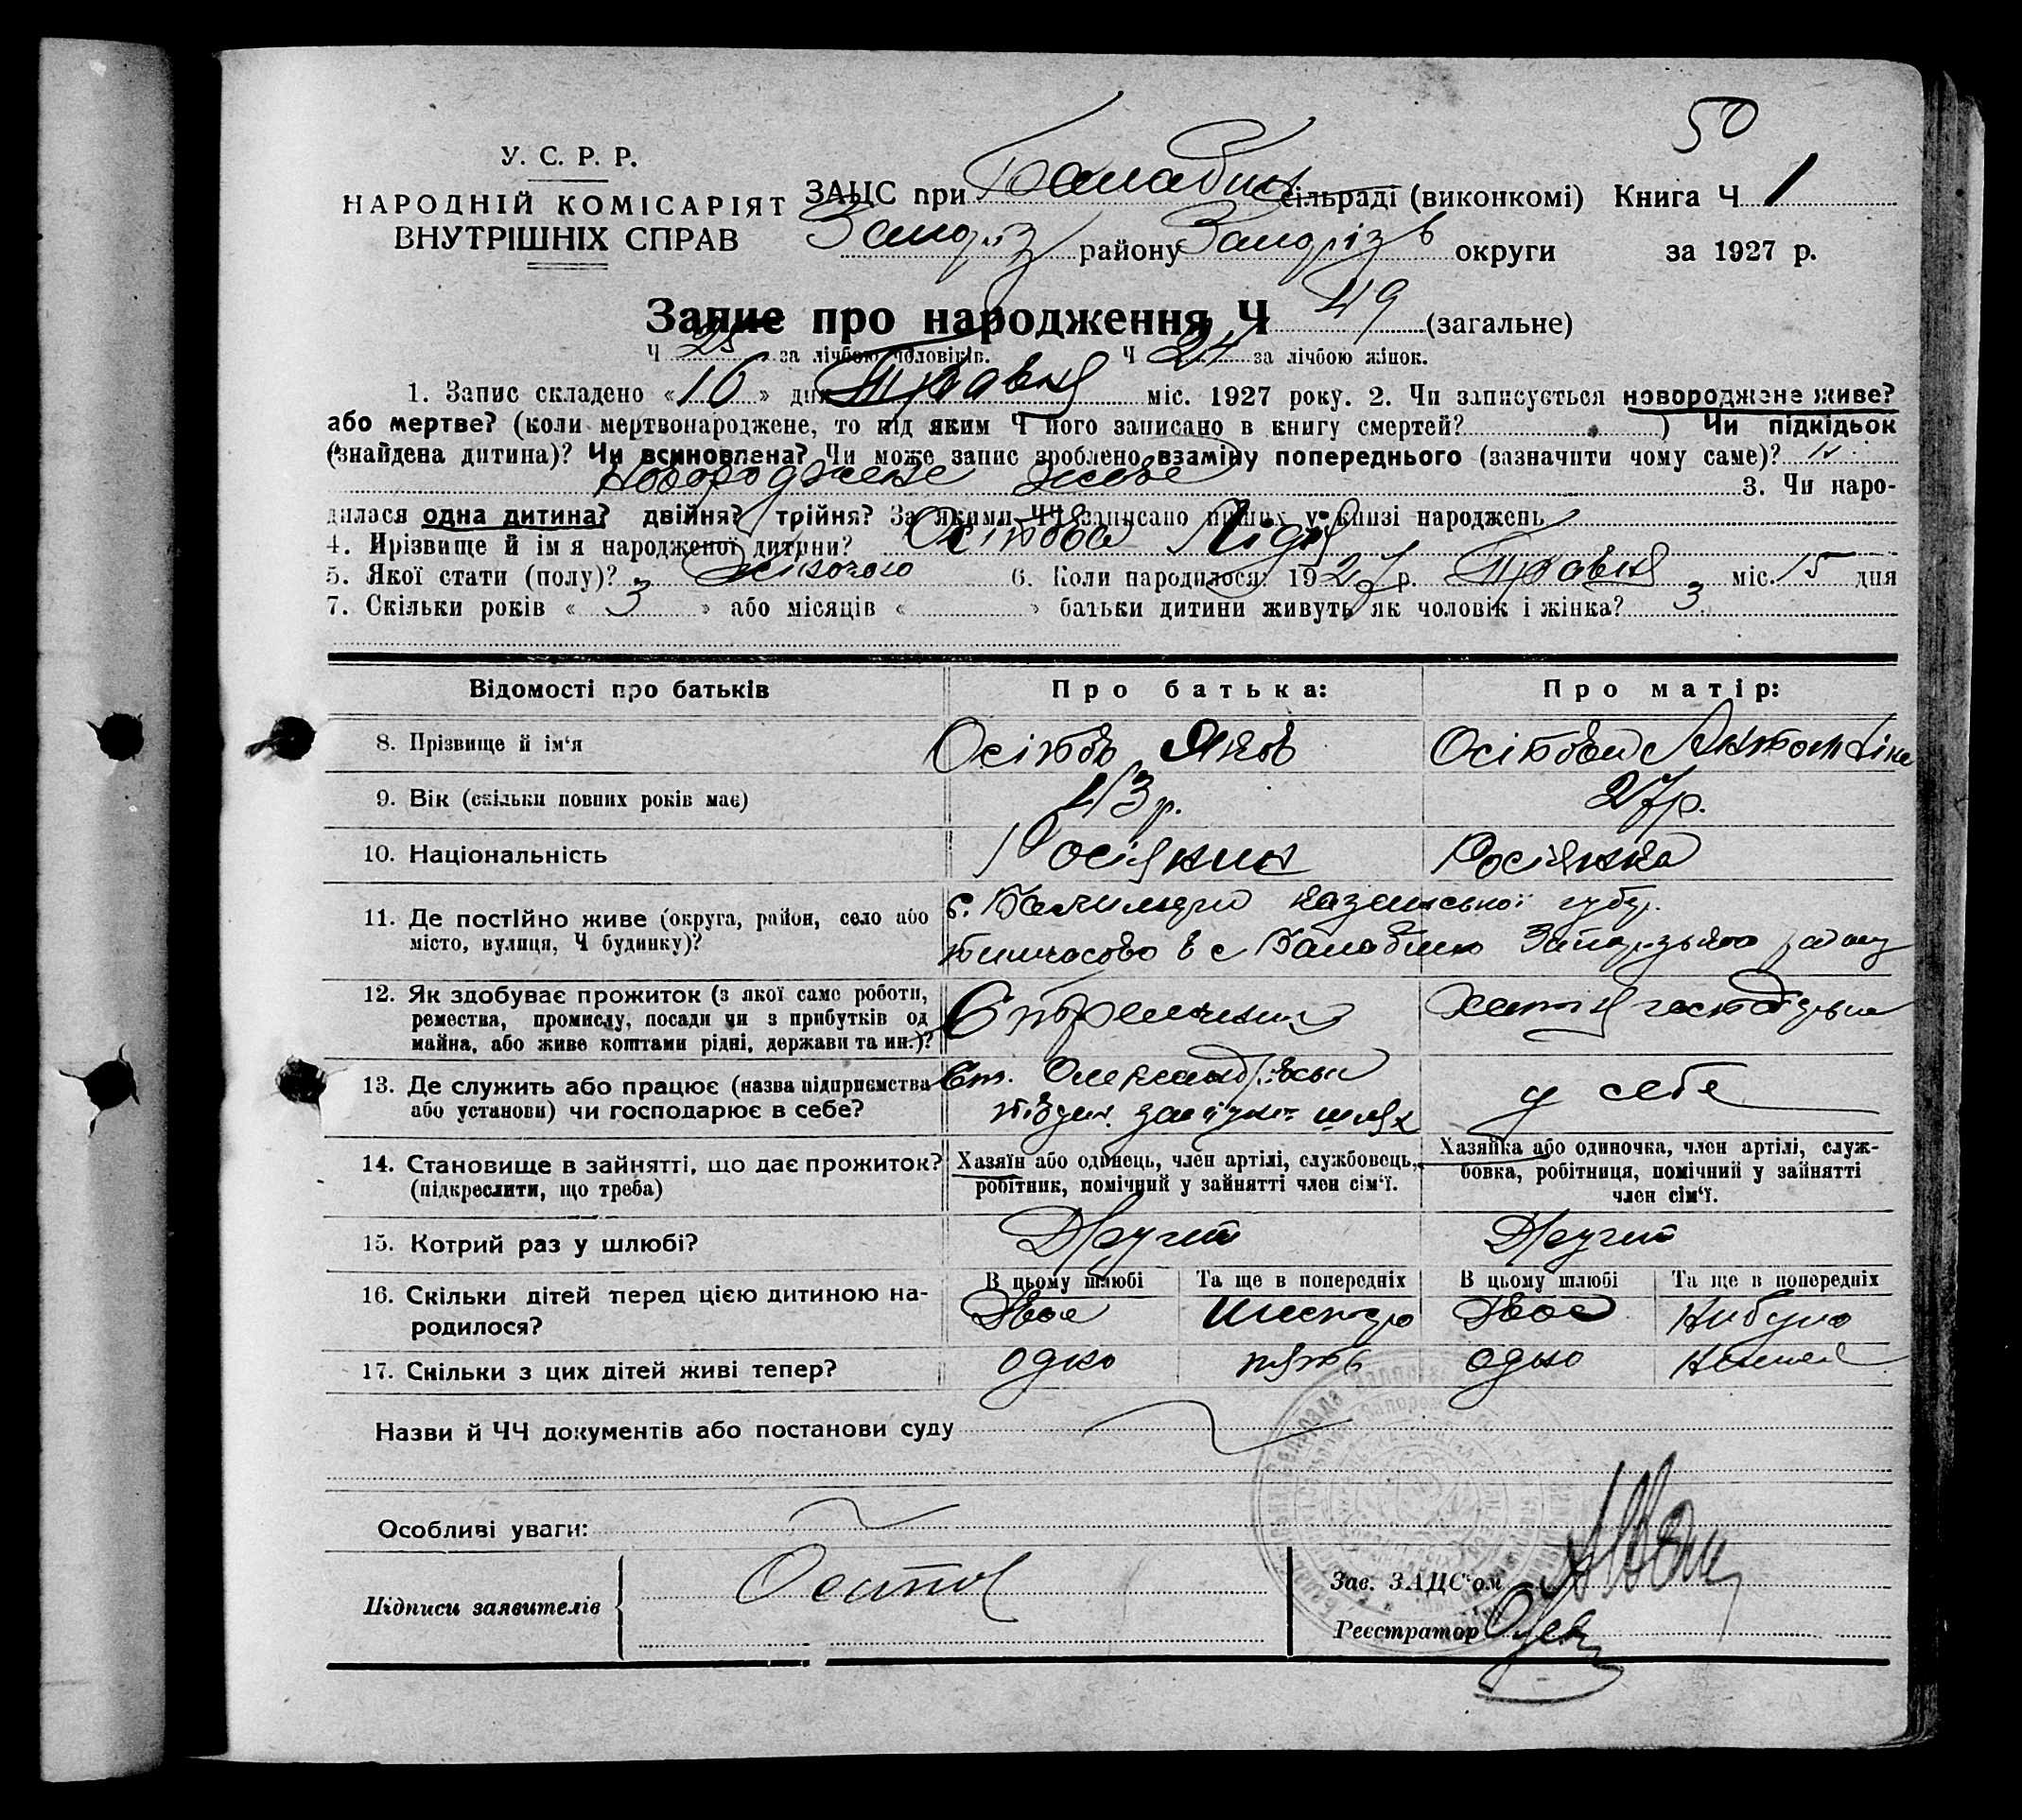 50
У. С. Р. Р.
НАРОДНІЙ КОМІСАРІЯТ
ВНУТРІШНІХ СПРАВ
ЗАЦС при Балабин сільраді (виконкомі) Книга Ч 1
Запоріз району Запорізь округи за 1927 р.
Запис про народження Ч 49 (загальне)
Ч 25 за лічбою чоловіків. Ч 24 за лічбою жінок.
1. Запис складено «16» дня Травня міс. 1927 року. 2. Чи записується новороджене живе?
або мертве? (коли мертвонароджене, то під яким Ч його записано в книгу смертей? ) Чи підкідьок
(знайдена дитина)? Чи всиновлена? Чи може запис зроблено взаміну попереднього (зазначити чому саме)?
Новороджене живе 3. Чи наро-
дилася одна дитина? двійня? трійня? За якими ЧЧ записано інших у книзі народжень
4. Прізвище й ім я народженої дитини? Осіпова Лідія
5. Якої стати (полу)? Жіночою 6. Коли народилося: 1927 р. Травня міс. 15 дня
7. Скільки років « 3 » або місяців « » батьки дитини живуть як чоловік і жінка? 3
Відомості про батьків
Про батька:
Про матір:
8. Прізвище й ім‘я
Осіпов Яков
Осіпова Антоніна
9. Вік (скільки повних років має)
43 р.
27 р.
10. Національність
Росіянин
Росіянка
11. Де постійно живе (округа, район, село або
місто, вулиця, Ч будинку)?
с. казанської губер.
тимчасово в с Балабино Запорізького району
12. Як здобуває прожиток (з якої саме роботи,
ремества, промислу, посади чи з прибутків од
майна, або живе коштами рідні, держави та ин.)?
Стрілочник
Хатня господарка
13. Де служить або працює (назва підприємства
або установи) чи господарює в себе?
Ст. Олександрівськ
півден. залізнт. шлях
у себе
14. Становище в зайнятті, що дає прожиток?
(підкреслити, що треба)
Хазяїн або одинець, член артілі, службовець,
робітник, помічний у зайнятті член сім‘ї.
Хазяйка або одиночка, член артілі, служ-
бовка, робітниця, помічний у зайнятті
член сім‘ї.
15. Котрий раз у шлюбі?
Другий
Другий
16. Скільки дітей перед цією дитиною на-
родилося?
В цьому шлюбі
Та ще в попередніх
В цьому шлюбі
Та ще в попередніх
Двоє
Шестеро
Двоє
Небуло
17. Скільки з цих дітей живі тепер?
одно
пять
одно
Немає
Назви й ЧЧ документів або постанови суду
Особливі уваги:
Підписи заявителів
Осипов
Зав. ЗАЦС‘ом
Реєстратор